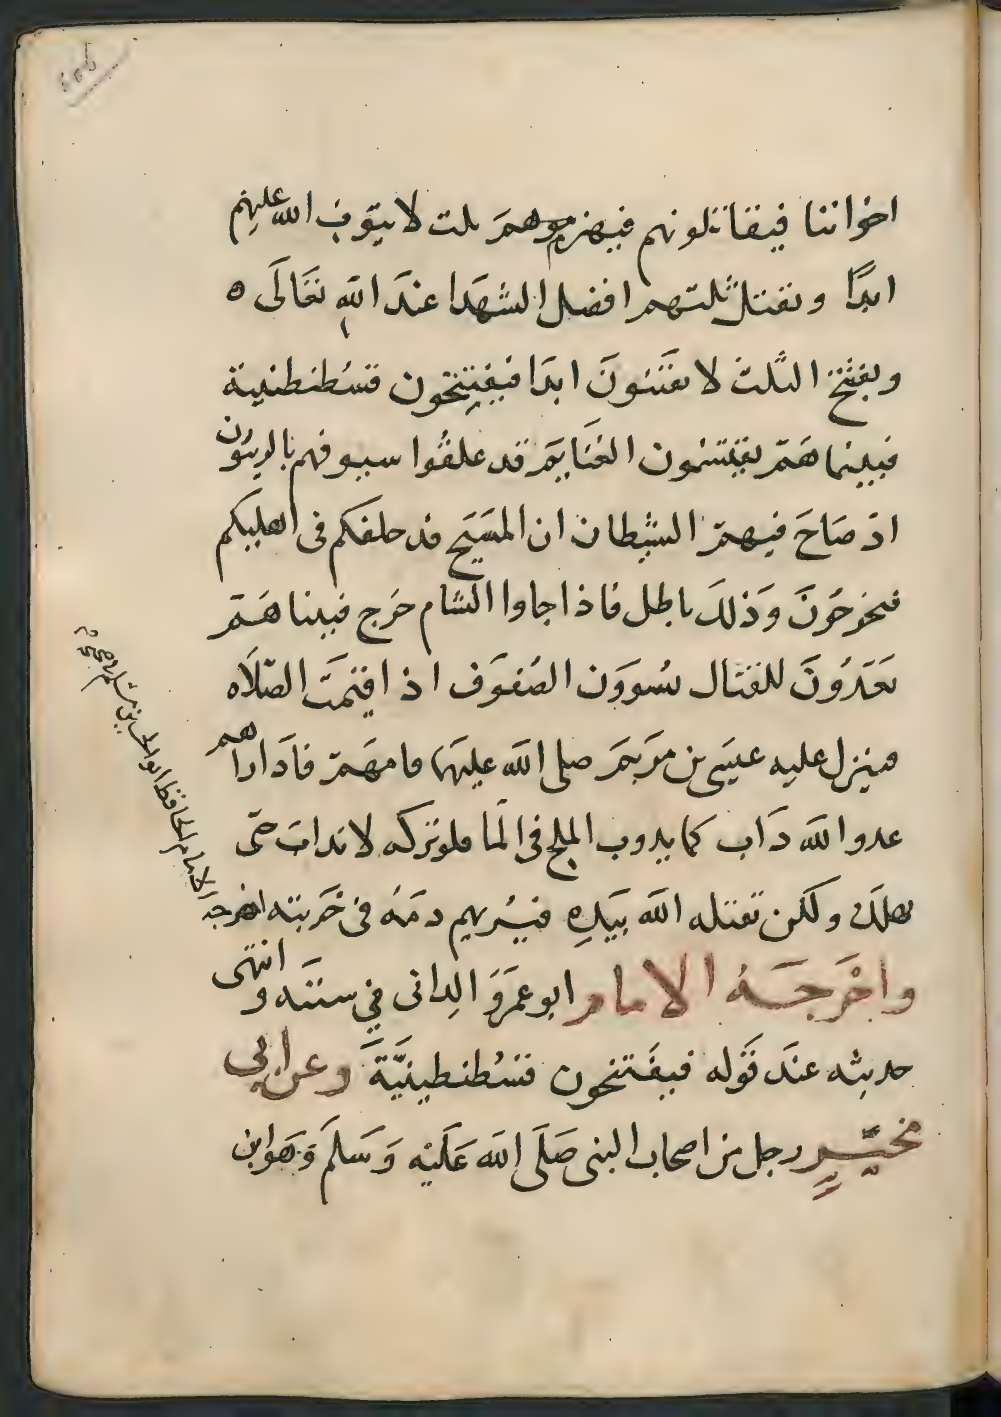 اخواننا فيقاتلونهم فيهزموهم ثلث لا يتوب الله عليهم
ابدًا ويقتل ثلثهم افضل الشهدا عند الله تعالى ه
ويفتح الثلث لا يفتنون ابدا فيفتتحون قسطنطينية
فبينما هم يقتسمون الغنايم قد علقوا سيوفهم بالزيتون
اذ صاح فيهم الشيطان ان المسيح قد خلفكم في اهليكم
فيخرجون وذلك باطل فاذا جاوا الشام خرج فبينا هم
يعدون للقتال يسوون الصفوف اذ اقيمت الصلاه
فينزل عليه عيسى بن مريم صلى الله عليهما فامهم فاذا راهم
عدو الله ذاب كما يذوب الملح في الما فلو تركه لانذاب حتى
يهلك ولكن يقتله الله بيده فيريهم دمه في حربته اخرجه
الامام الحافظ ابو الحسين مسلم في صحيحه
واخرجه الامام ابو عمرو الداني في سننه وانتهى
حديثه عند قوله فيفتتحون قسطنطينيّة وعن ابي
مخيّرٍ رجل من اصحاب النبى صلى الله عليه وسلم وهو ابن